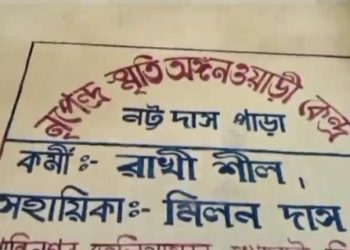 নৃপেন্দ্র স্মৃতি অঙ্গনওয়াড়ী কেন্দ্র
নট্ট দাস পাড়া
কর্মী:- রাখী শীল,
সহায়িকা:- মিলন দাস